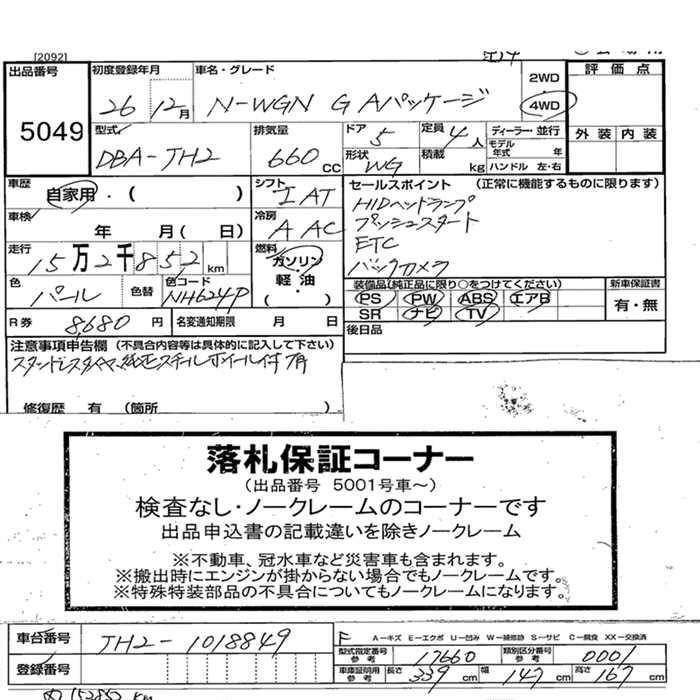 [2092]
出品番号 5049
初度登録年月 26 12月
車名・グレード N-WGN G Aパッケージ
2WD
4WD
評価点
外装 内装
型式 DBA-JH2
排気量 660cc
ドア 5
定員 4人
形状 WG
積載 kg
ディーラー・並行
モデル年式 年
ハンドル 左・右
車歴 自家用・( )
シフト IAT
セールスポイント (正常に機能するものに限ります)
HIDヘッドランプ
プッシュスタート
ETC
バックカメラ
車検 年 月(日)
冷房 AAC
走行 15万2千852km
燃料 ガソリン・軽油・( )
色 パール
色替
色コード NH624P
装備品(純正品に限り○をつけてください)
PS PW ABS エアB
SR ナビ TV
新車保証書
有・無
R券 8,680円
名変通知期限 月 日
後日品
注意事項申告欄 (不具合内容等は具体的に記入して下さい)
修復歴 有 (箇所
落札保証コーナー
(出品番号 5001号車~)
検査なし・ノークレームのコーナーです
出品申込書の記載違いを除きノークレーム
※不動車、冠水車など災害車も含まれます。
※搬出時にエンジンが掛からない場合でもノークレームです。
※特殊特装部品の不具合についてもノークレームになります。
車台番号 JH2-1018849
登録番号
F
A―キズ E―エクボ U―凹み W―補修跡 S―サビ C―腐食 XX―交換済
型式指定番号 参考 17660
類別区分番号 参考 0001
車庫証明用 参考 長さ 339cm 幅 147cm 高さ 167cm